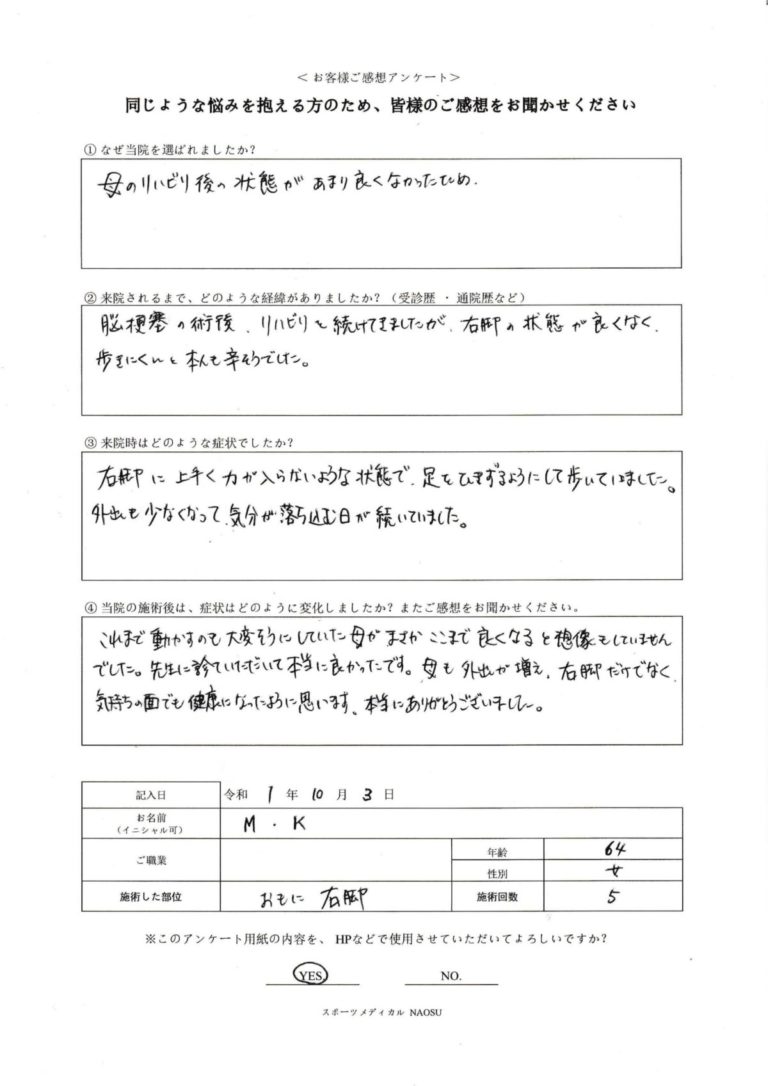 ＜お客様ご感想アンケート＞
同じような悩みを抱える方のため、皆様のご感想をお聞かせください
① なぜ当院を選ばれましたか？
母のリハビリ後の状態があまり良くなかったため.
② 来院されるまで、どのような経緯がありましたか？（受診歴 ・ 通院歴など）
脳梗塞の術後、リハビリを続けてきましたが、右脚の状態が良くなく、
歩きにくいと本人も辛そうでした。
③ 来院時はどのような症状でしたか？
右脚に上手く力が入らないような状態で、足をひきずるようにして歩いていました。
外出も少なくなって、気分が落ち込む日が続いていました。
④ 当院の施術後は、症状はどのように変化しましたか？またご感想をお聞かせください。
これまで動かすのも大変そうにしていた母がまさかここまで良くなると想像もしていません
でした。先生に診ていただいて本当に良かったです。母も外出が増え、右脚だけでなく、
気持ちの面でも健康になったように思います、本当にありがとうございました。
記入日 令和 1 年 10 月 3 日
お名前 M . K
（イニシャル可）
ご職業 年齢 64
性別 女
施術した部位 おもに 右脚 施術回数 5
※このアンケート用紙の内容を、 HPなどで使用させていただいてよろしいですか？
YES. NO.
スポーツメディカル NAOSU